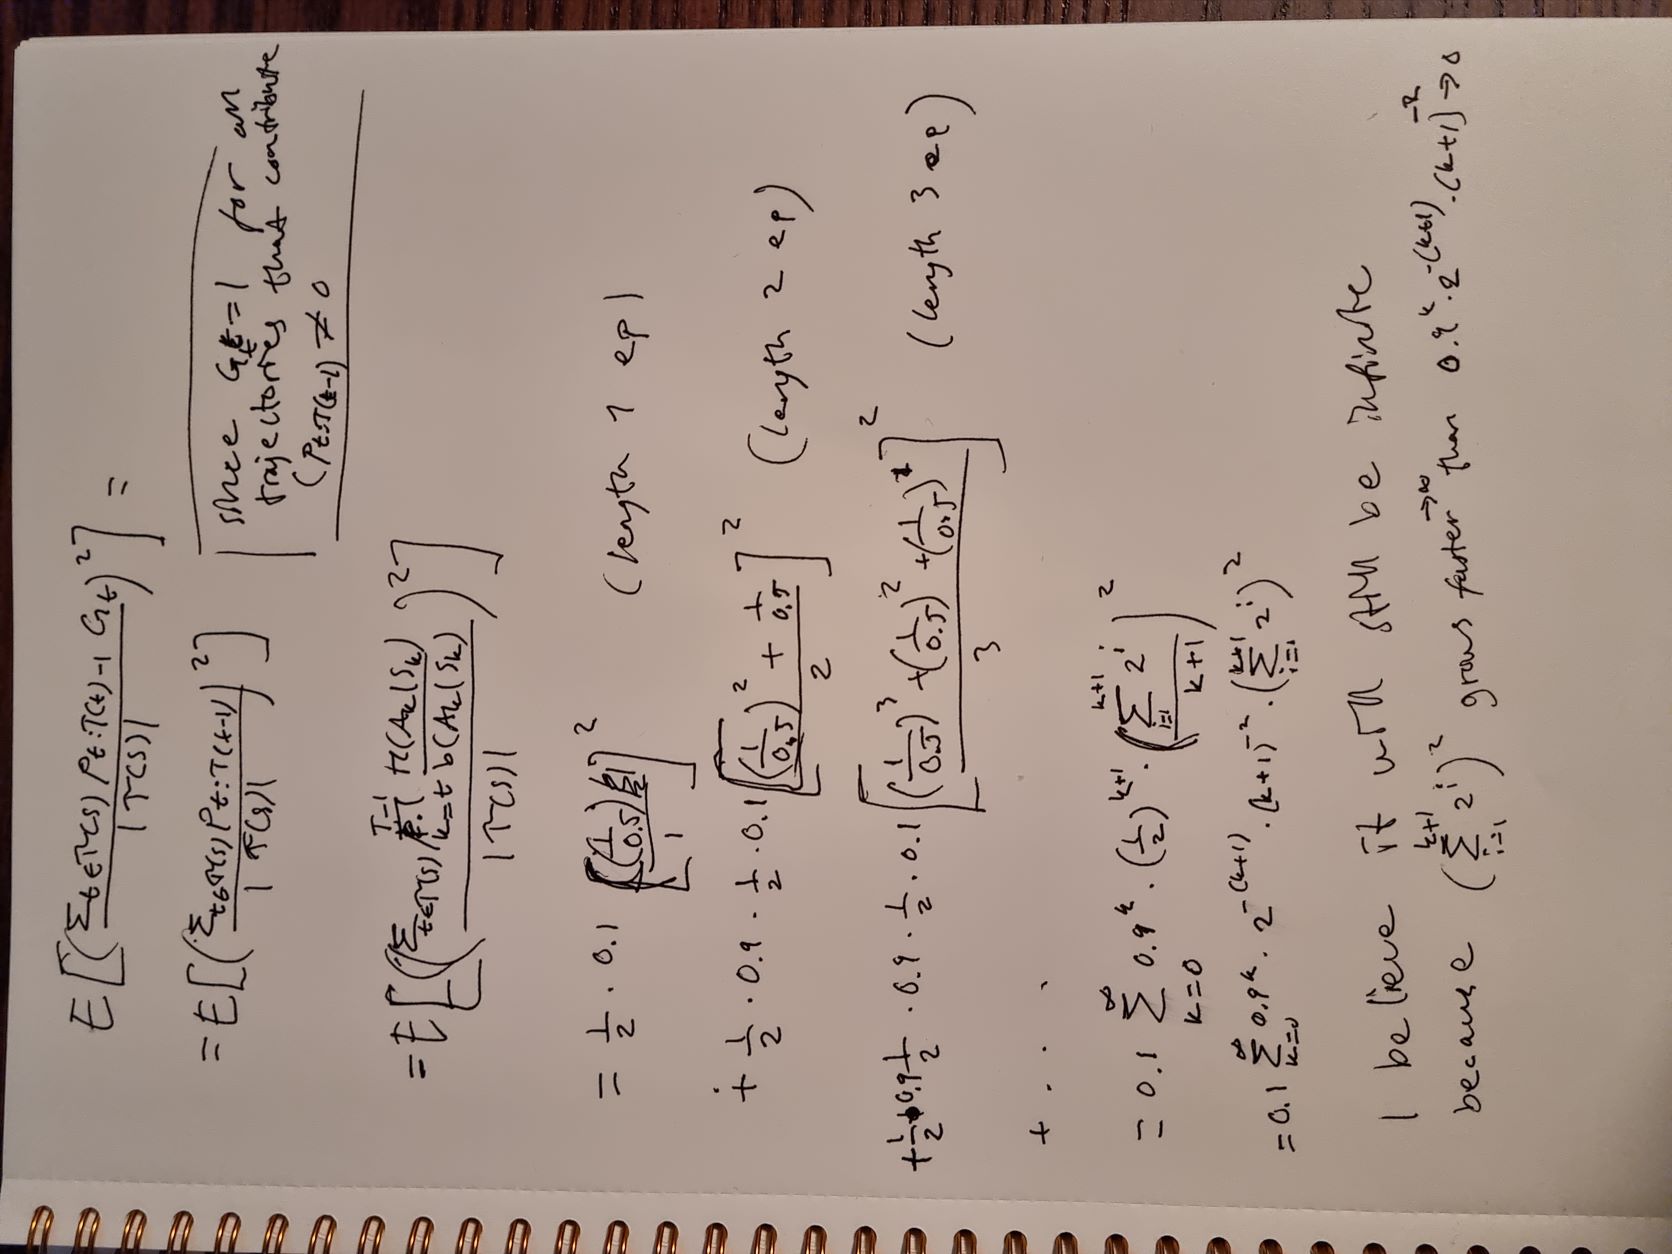 E[(Σ_{t∈𝒯(s)} ρ_{t:T(t)-1} G_t / |𝒯(s)|)²] =
= E[(Σ_{t∈𝒯(s)} ρ_{t:T(t-1)} / |𝒯(s)|)²]
since G_t = 1 for all
trajectories that contribute
(ρ_{t:T(t-1)} ≠ 0
= E[(Σ_{t∈𝒯(s)} ∏_{k=t}^{T-1} π(A_k|S_k) / b(A_k|S_k) / |𝒯(s)|)²]
= 1/2 · 0.1 [(1/0.5) / 1]² (length 1 ep)
+ 1/2 · 0.9 · 1/2 · 0.1 [((1/0.5)² + 1/0.5) / 2]² (length 2 ep)
+ 1/2 · 0.9 1/2 · 0.9 · 1/2 · 0.1 [((1/0.5)³ + (1/0.5)² + (1/0.5)¹) / 3]² (length 3 ep)
+ . . .
= 0.1 Σ_{k=0}^{∞} 0.9^k · (1/2)^{k+1} · (Σ_{i=1}^{k+1} 2^i / k+1)²
= 0.1 Σ_{k=0}^{∞} 0.9^k · 2^{-(k+1)} · (k+1)^{-2} · (Σ_{i=1}^{k+1} 2^i)²
I believe it will still be infinite
because (Σ_{i=1}^{k+1} 2^i)² grows faster →∞ than 0.9^k · 2^{-(k+1)} · (k+1)^{-2} → 0